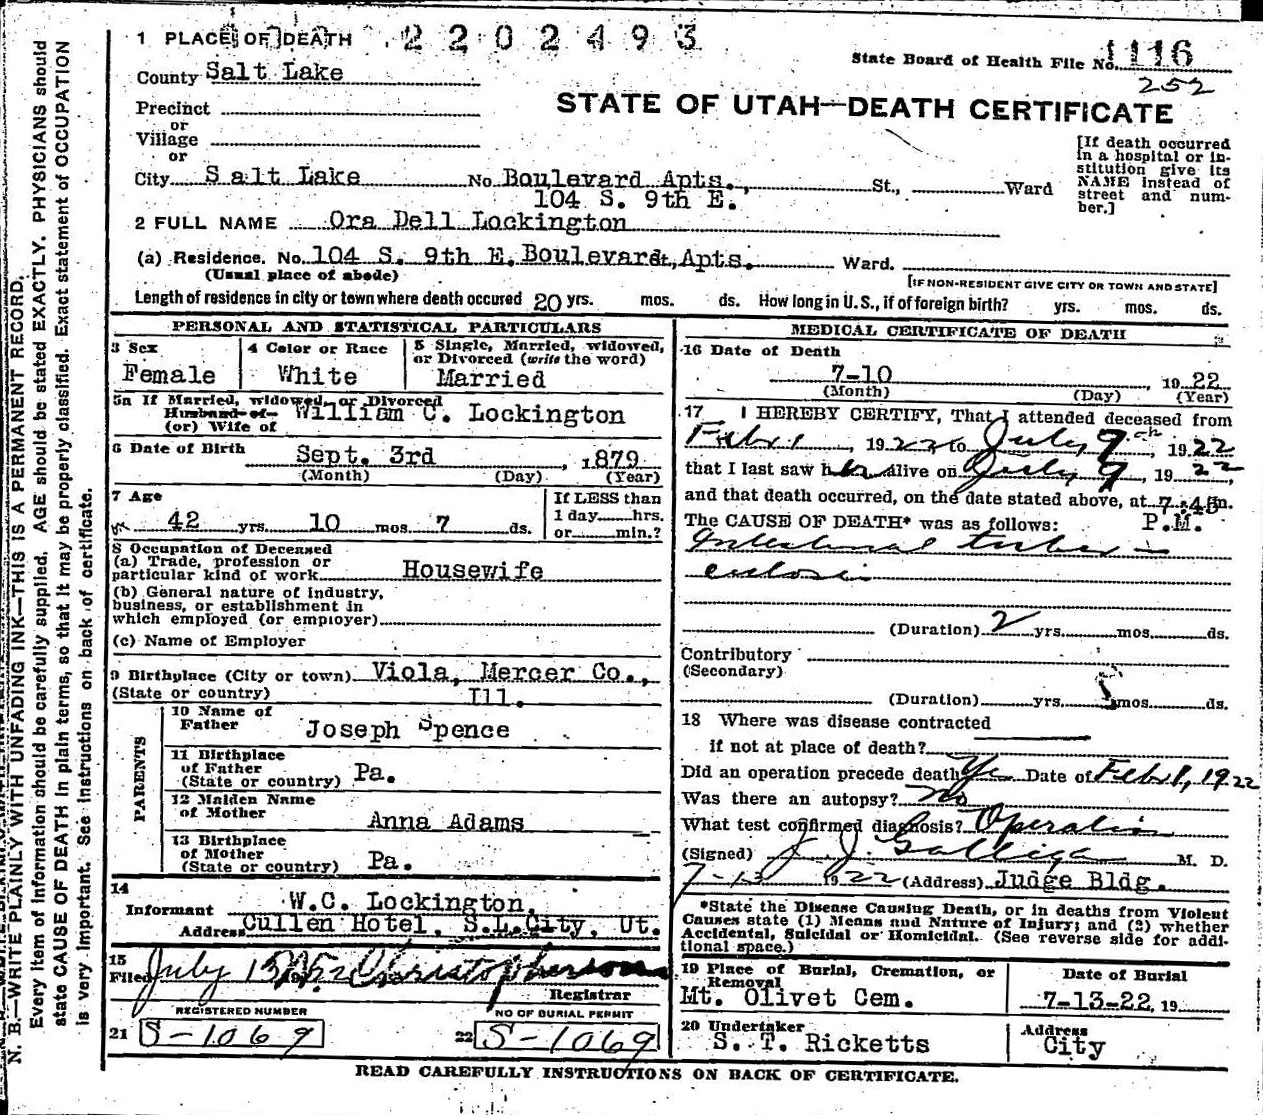 1 PLACE OF DEATH 2202493
State Board of Health File No. 1116
252
County Salt Lake
STATE OF UTAH—DEATH CERTIFICATE
Precinct
or
Village
or
City Salt Lake No. Boulevard Apts., St., Ward
104 S. 9th E.
[If death occurred
in a hospital or in-
stitution give its
NAME instead of
street and num-
ber.]
2 FULL NAME Ora Dell Lockington
(a) Residence. No. 104 S. 9th E. Boulevard Apts. Ward.
(Usual place of abode) [IF NON-RESIDENT GIVE CITY OR TOWN AND STATE]
Length of residence in city or town where death occured 20 yrs. mos. ds. How long in U. S., if of foreign birth? yrs. mos. ds.
PERSONAL AND STATISTICAL PARTICULARS
3 Sex
Female
4 Color or Race
White
5 Single, Married, widowed,
or Divorced (write the word)
Married
5a If Married, widowed, or Divorced
Husband of
(or) Wife of William C. Lockington
6 Date of Birth Sept. 3rd, 1879
(Month) (Day) (Year)
7 Age
42 yrs. 10 mos. 7 ds.
If LESS than
1 day hrs.
or min.?
8 Occupation of Deceased
(a) Trade, profession or
particular kind of work Housewife
(b) General nature of industry,
business, or establishment in
which employed (or employer)
(c) Name of Employer
9 Birthplace (City or town) Viola, Mercer Co.,
(State or country) Ill.
PARENTS
10 Name of
Father Joseph Spence
11 Birthplace
of Father
(State or country) Pa.
12 Maiden Name
of Mother Anna Adams
13 Birthplace
of Mother
(State or country) Pa.
14
Informant W.C. Lockington,
Address Cullen Hotel, S.L.City, Ut.
15
Filed July 15 Christopherson
Registrar
REGISTERED NUMBER
21 S-1069
NO OF BURIAL PERMIT
22 S-1069
MEDICAL CERTIFICATE OF DEATH
16 Date of Death
7-10 19 22
(Month) (Day) (Year)
17 I HEREBY CERTIFY, That I attended deceased from
Feb 1, 1922 to July 9th, 1922
that I last saw her alive on July 9, 1922,
and that death occurred, on the date stated above, at 7:45 m.
P.M.
The CAUSE OF DEATH* was as follows:
Intestinal tuber-
culosis
(Duration) 2 yrs. mos. ds.
Contributory
(Secondary)
(Duration) yrs. mos. ds.
18 Where was disease contracted
if not at place of death?
Did an operation precede death Yes Date of Feb 1, 1922
Was there an autopsy? No
What test confirmed diagnosis? Operation
(Signed) J J Galligan M. D.
7-13 1922 (Address) Judge Bldg.
*State the Disease Causing Death, or in deaths from Violent
Causes state (1) Means and Nature of Injury; and (2) whether
Accidental, Suicidal or Homicidal. (See reverse side for addi-
tional space.)
19 Place of Burial, Cremation, or
Removal
Mt. Olivet Cem.
Date of Burial
7-13-22, 19
20 Undertaker
S. T. Ricketts
Address
City
READ CAREFULLY INSTRUCTIONS ON BACK OF CERTIFICATE.
N. B.—WRITE PLAINLY WITH UNFADING INK—THIS IS A PERMANENT RECORD.
Every item of information should be carefully supplied. AGE should be stated EXACTLY. PHYSICIANS should
state CAUSE OF DEATH in plain terms, so that it may be properly classified. Exact statement of OCCUPATION
is very important. See instructions on back of certificate.